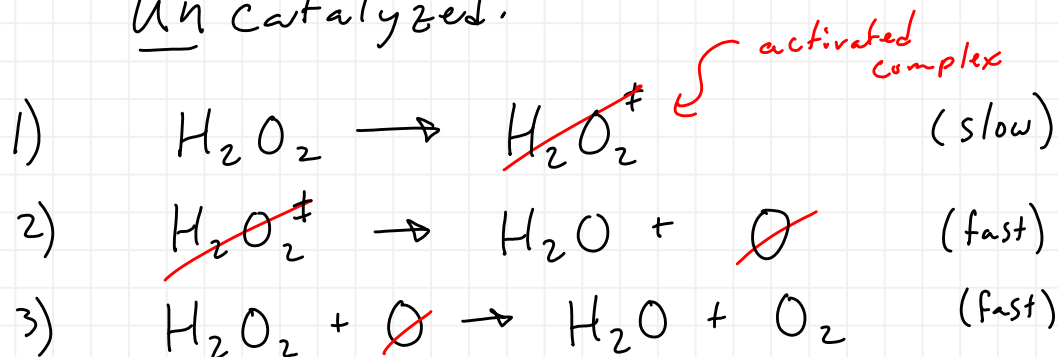 Uncatalyzed:
activated
complex
1) H₂O₂ → H₂O₂‡ (slow)
2) H₂O₂‡ → H₂O + O (fast)
3) H₂O₂ + O → H₂O + O₂ (fast)